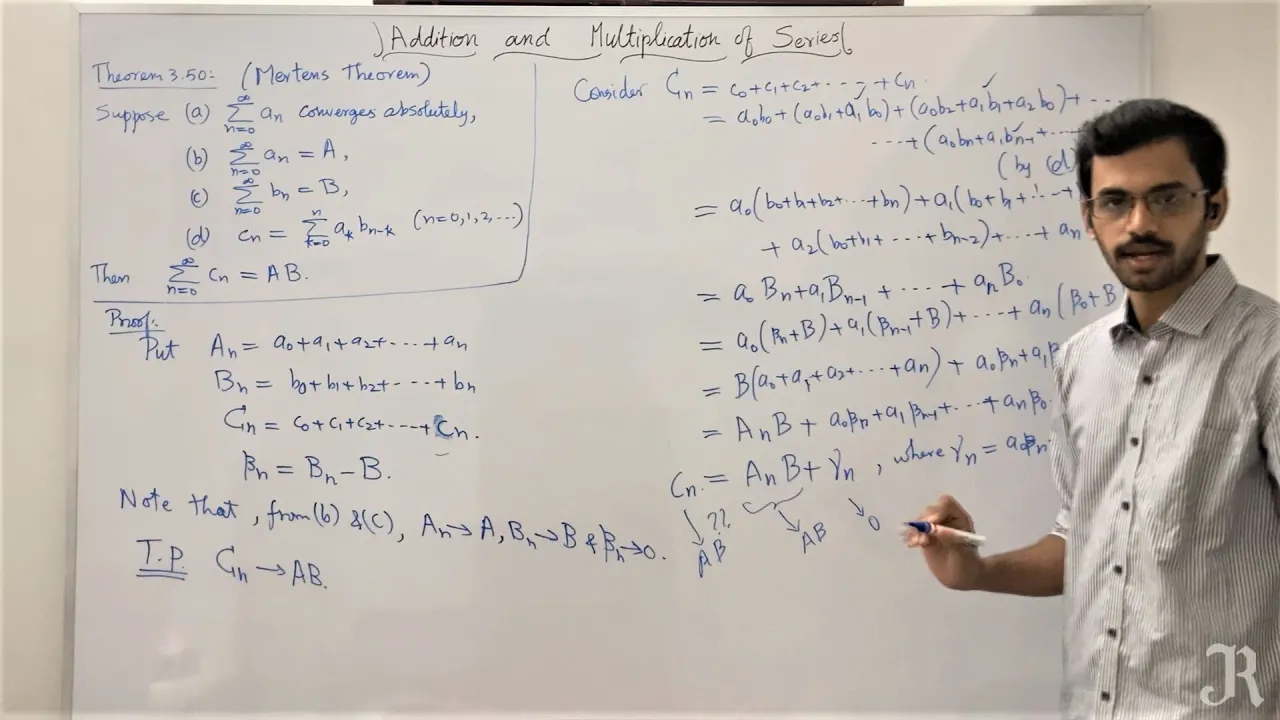 Addition and Multiplication of Series
Theorem 3.50:- (Mertens Theorem)
Suppose (a) ∑_{n=0}^{∞} a_n converges absolutely,
(b) ∑_{n=0}^{∞} a_n = A,
(c) ∑_{n=0}^{∞} b_n = B,
(d) c_n = ∑_{k=0}^{n} a_k b_{n-k} (n=0,1,2,...)
Then ∑_{n=0}^{∞} c_n = AB.
Proof:-
Put A_n = a_0+a_1+a_2+....+a_n
B_n = b_0+b_1+b_2+....+b_n
C_n = c_0+c_1+c_2+....+c_n.
β_n = B_n - B.
Note that, from (b) & (c), A_n → A, B_n → B & β_n → 0.
T.P. C_n → AB.
Consider C_n = c_0+c_1+c_2+....+c_n.
= a_0b_0+(a_0b_1+a_1b_0)+(a_0b_2+a_1b_1+a_2b_0)+....
...+(a_0b_n+a_1b_{n-1}+...
(by (d)
= a_0(b_0+b_1+b_2+...+b_n)+a_1(b_0+b_1+...+
+ a_2(b_0+b_1+....+b_{n-2})+...+ a_n
= a_0B_n+a_1B_{n-1}+....+a_nB_0.
= a_0(β_n+B)+a_1(β_{n-1}+B)+...+a_n(β_0+B
= B(a_0+a_1+a_2+...+a_n)+ a_0β_n+a_1β
= A_nB + a_0β_n+a_1β_{n-1}+...+a_nβ_0.
C_n = A_nB + γ_n, where γ_n = a_0β_n
??
AB AB 0
R